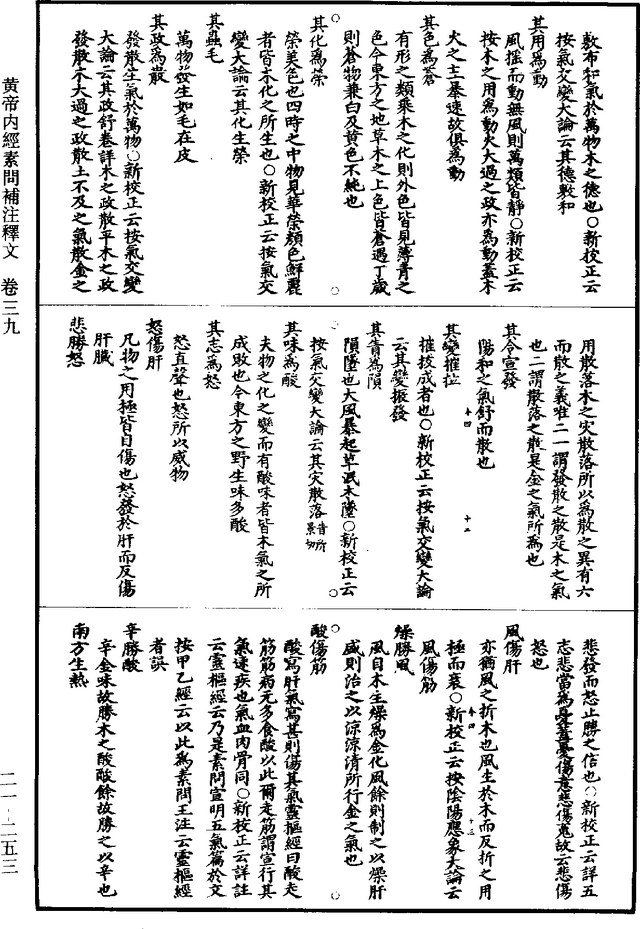 黃帝內經素問補注釋文 卷三九
二一-二五三
敷布和氣於萬物木之德也○新校正云
按氣交變大論云其德敷和
其用為動
風搖而動無風則萬類皆靜○新校正云
按木之用為動火太過之政亦為動蓋木
火之主暴速故俱為動
其色為蒼
有形之類乘木之化則外色皆見薄青之
色今東方之地草木之上色皆蒼遇丁歲
則蒼物兼白及黃色不純也
其化為榮
榮美色也四時之中物見華榮顏色鮮麗
者皆木化之所生也○新校正云按氣交
變大論云其化生榮
其蟲毛
萬物發生如毛在皮
其政為散
發散生氣於萬物○新校正云按氣交變
大論云其政舒啓詳木之政散平木之政
發散木太過之政散土不及之氣散金之
用散落木之災散落所以為散之異有六
而散之義唯二一謂發散之散是木之氣
也二謂散落之散是金之氣所為也
其令宣發
陽和之氣舒而散也
其變摧拉
摧拔成者也○新校正云按氣交變大論
云其變振發
其眚為隕
隕墜也大風暴起草泯木墜○新校正云
按氣交變大論云其災散落眚所景切
其味為酸
夫物之化之變而有酸味者皆木氣之所
成敗也今東方之野生味多酸
其志為怒
怒直聲也怒所以威物
怒傷肝
凡物之用極皆自傷也怒發於肝而反傷
肝臟
悲勝怒
悲發而怒止勝之信也○新校正云詳五
志悲當為憂蓋憂傷意悲傷魂故云悲傷
怒也
風傷肝
亦猶風之折木也風生於木而反折之用
極而衰○新校正云按陰陽應象大論云
風傷筋
燥勝風
風自木生燥為金化風餘則制之以燥肝
盛則治之以涼涼清所行金之氣也
酸傷筋
酸寫肝氣寫甚則傷其氣靈樞經曰酸走
筋筋病无多食酸以此爾走筋謂宣行其
氣速疾也氣血肉骨同○新校正云詳註
云靈樞經云乃是素問宣明五氣篇於文
按甲乙經云以此為素問王注云靈樞經
者誤
辛勝酸
辛金味故勝木之酸酸餘故勝之以辛也
南方生熱